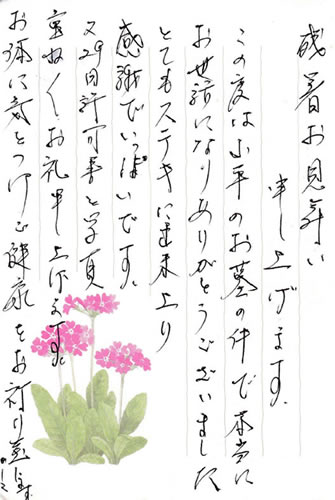 残暑お見舞い
申し上げます。
この度は小平のお墓の件で本当に
お世話になりありがとうございました
とてもステキに出来上り
感謝でいっぱいです。
又29日許可書と写真
重ねてお礼申し上げます。
お体に気をつけて健康をお祈り致します。